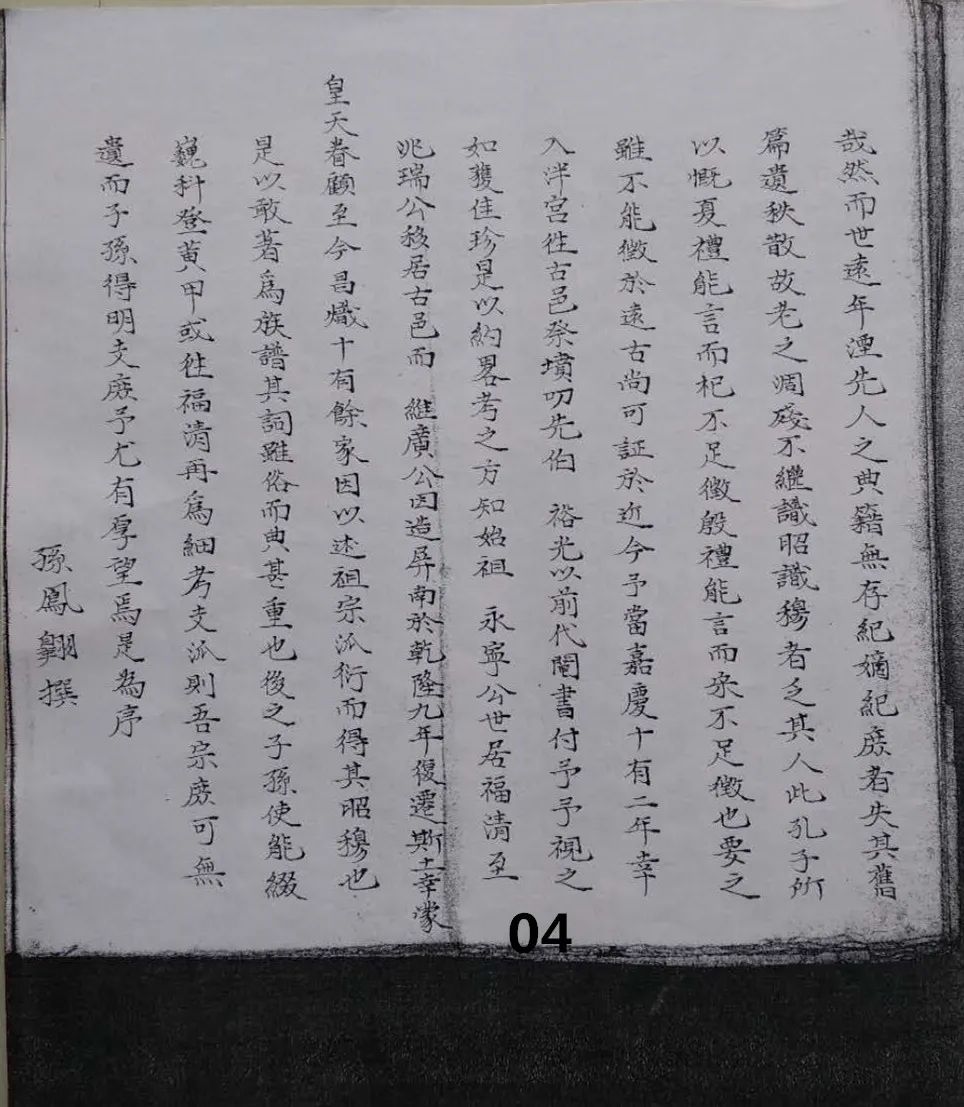 哉然而世遠年湮先人之典籍無存紀嫡紀庶者失其舊
篇遺秩散故老之凋殘不繼識昭識穆者乏其人此孔子所
以慨夏禮能言而杞不足徵殷禮能言而宋不足徵也要之
雖不能徵於遠古尚可証於近今予當嘉慶十有二年幸
入泮宮往古邑祭墳叨先伯 裕光以前代鬮書付予予視之
如獲佳珍是以約畧考之方知始祖 永寍公世居福清至
兆瑞公移居古邑而 維廣公因造屏南於乾隆九年復遷斯土幸蒙
皇天眷顧至今昌熾十有餘家因以述祖宗派衍而得其昭穆也
是以敢著為族譜其詞雖俗而典甚重也後之子孫使能綴
巍科登黃甲或往福清再為細考支派則吾宗庶可無
遺而子孫得明支庶予尤有厚望焉是為序
孫鳳翺撰
04